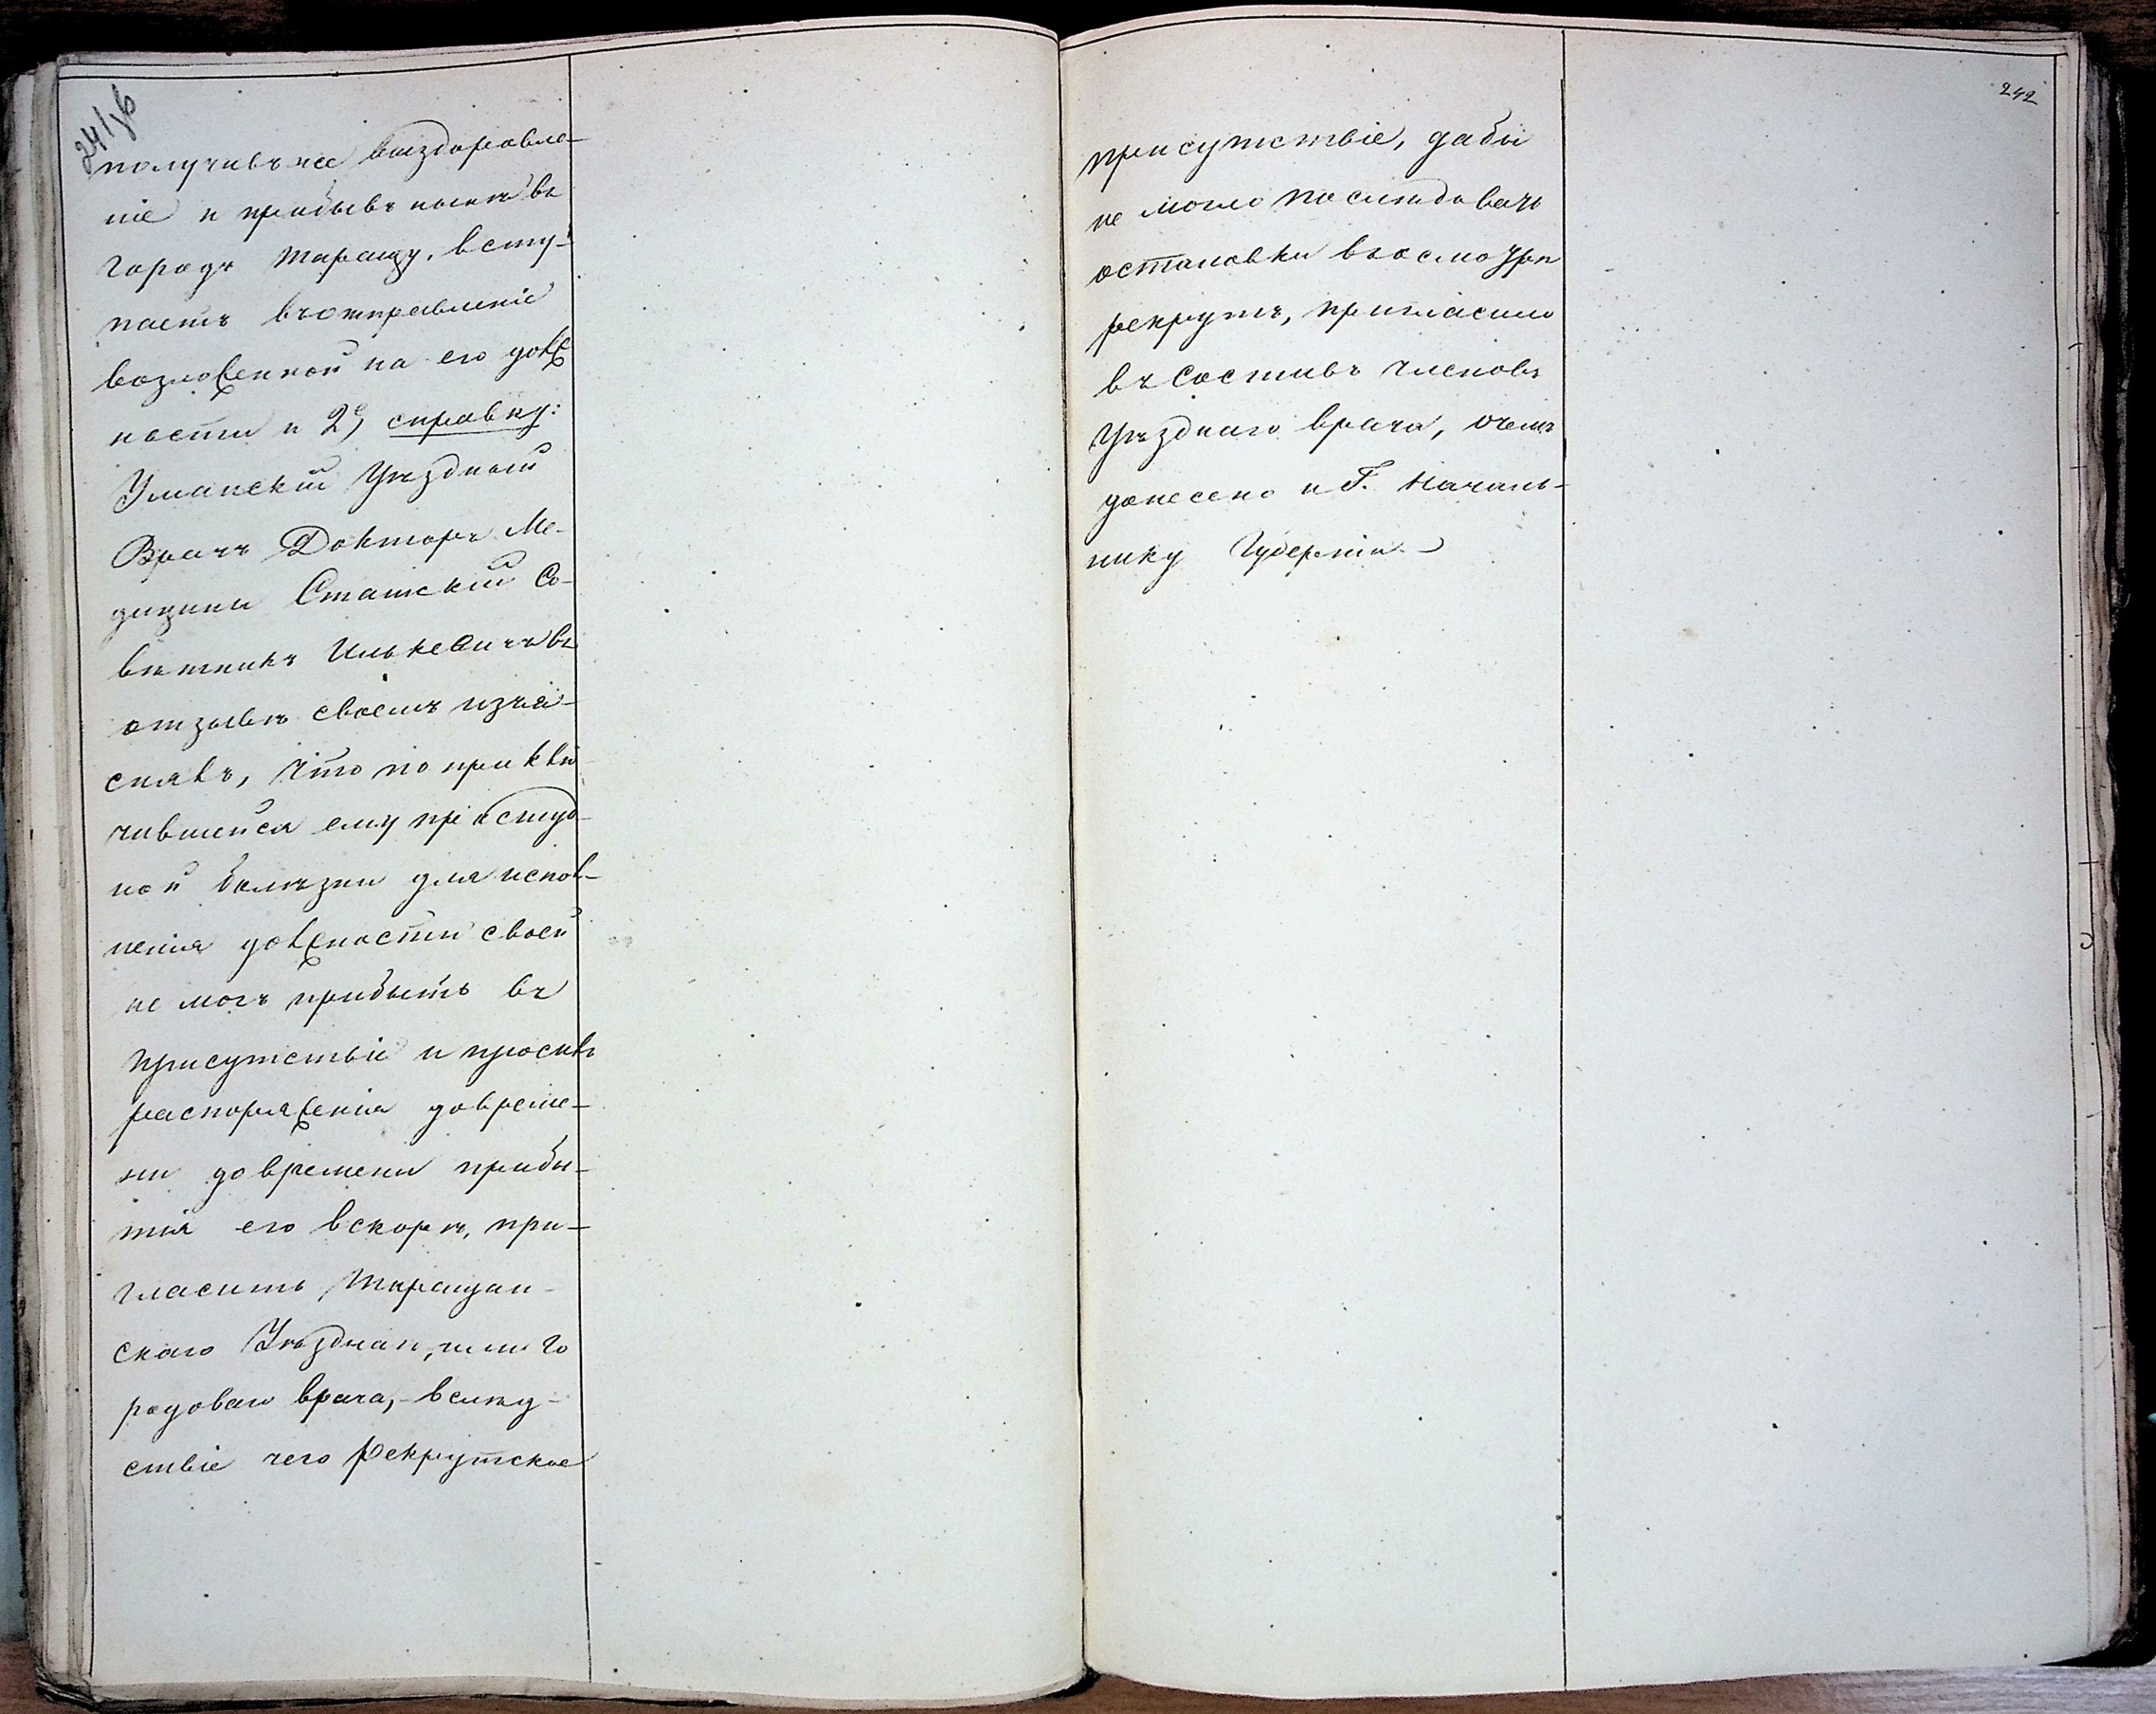 241 об
получивъ нее выздоровле-
ніе и прибывъ нынѣ въ
городъ Таращу, всту-
паетъ въ отправленіе
возложенной на его долж
ности и 2е, справку:
Уманскій Уѣздный
Врачъ Докторъ Ме-
дицины Статскій Со-
вѣтникъ Илькевичъ въ
отзывѣ своемъ изъя-
снявъ, что по приклю
чившейся ему простуд-
ной болѣзни для испол-
ненія должности своей
не могъ прибыть въ
присутствіе и просивъ
распоряженія до време-
ни до времени прибы-
тія его вскорѣ, при-
гласить Таращан-
скаго Уѣзднаго, или го
родоваго врача,- вслѣд-
ствіе чего Рекрутское
242
присутствіе, дабы
не могло послѣдовать
остановки въ осмотрѣ
рекрутъ, пригласило
въ составъ членовъ
Уѣзднаго врача, о чемъ
донесено и Г. Началь-
нику Губерніи.